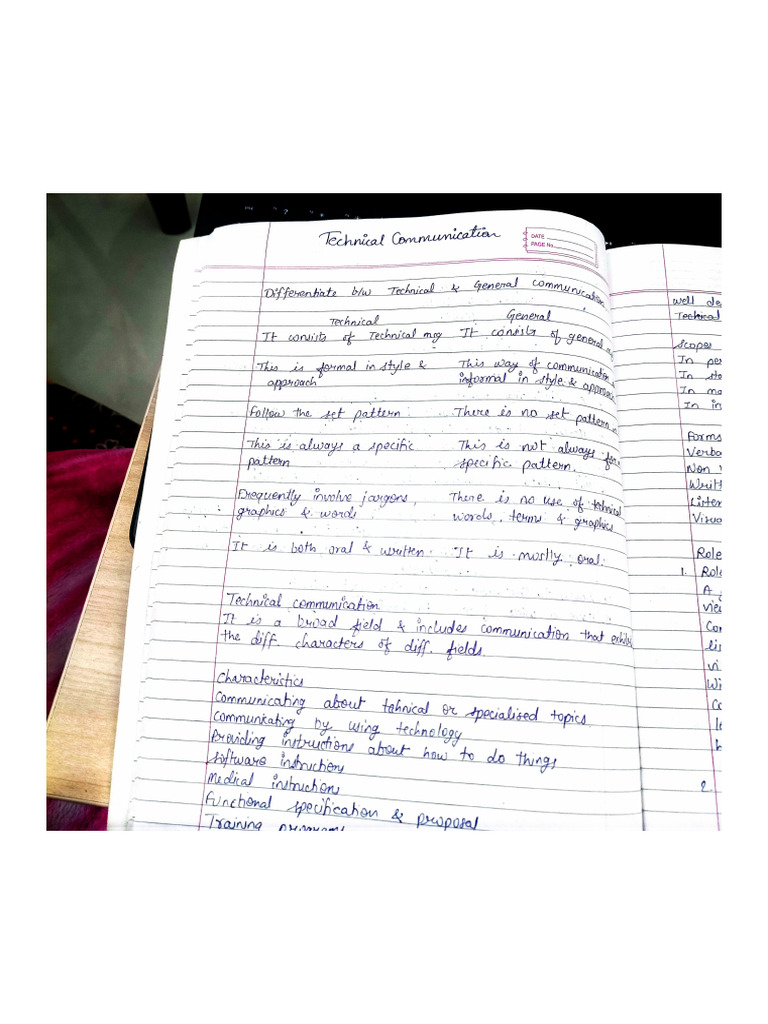 Technical Communication
DATE
PAGE No.
Differentiate b/w Technical & General communication
Technical General
It consists of Technical msg It consists of general
This is formal in style & This way of communication
approach informal in style & approach
Follow the set pattern There is no set pattern
This is always a specific This is not always for
pattern specific pattern.
Frequently involve jargons, There is no use of tehnical
graphics & words words, terms & graphics
It is both oral & written It is mostly oral.
Technical communication
It is a broad field & includes communication that
the diff. characters of diff. fields.
Characteristics
Communicating about tehnical or specialised topics
Communicating by using technology
Providing instructions about how to do things
software instructions
Medical instructions
Functional specification & proposal
Training programs
well de
Technical
Scopes
In per
In sto
In ma
In in
Forms
Verba
Non v
Writt
Listen
Visua
Role
1. Role
A
vie
Con
lis
vi
Wi
Co
2